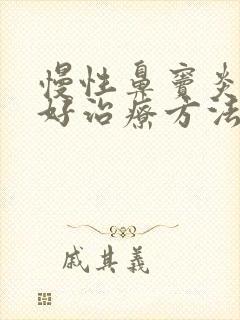 慢性鼻窦炎
好治疗方法
戚其義